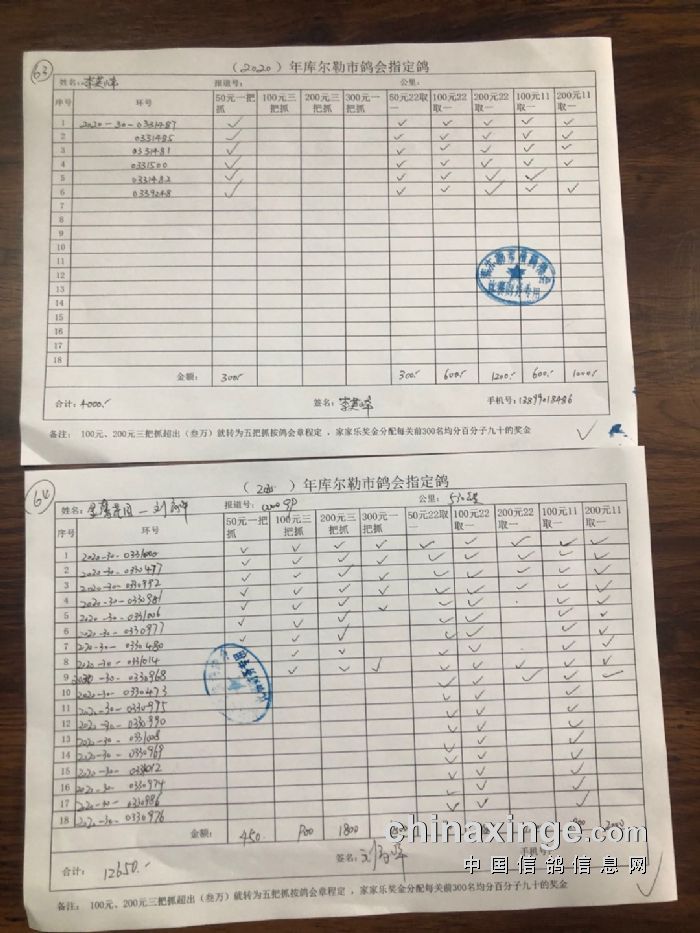 63
（2020）年库尔勒市鸽会指定鸽
姓名： 报道号： 公里：
序号 环号 50元一把抓 100元三把抓 200元三把抓 300元一把抓 50元22取一 100元22取一 200元22取一 100元11取一 200元11取一
1 2020-30-0331487 ✓ ✓ ✓ ✓ ✓ ✓
2 0331485 ✓ ✓ ✓ ✓ ✓ ✓
3 0331481 ✓ ✓ ✓ ✓ ✓ ✓
4 0331500 ✓ ✓ ✓ ✓ ✓ ✓
5 0331482 ✓ ✓ ✓ ✓ ✓
6 0339248 ✓ ✓ ✓ ✓ ✓ ✓
7
8
9
10
11
12
13
14
15
16
17
18
金额： 300.- 300.- 600.- 1200.- 600.- 1000.-
合计：4000.- 签名： 手机号：13899018486
备注： 100元、200元三把抓超出（叁万）就转为五把抓按鸽会章程定，家家乐奖金分配每关前300名均分百分子九十的奖金
64
（ ）年库尔勒市鸽会指定鸽
姓名： 报道号： 公里：
序号 环号 50元一把抓 100元三把抓 200元三把抓 300元一把抓 50元22取一 100元22取一 200元22取一 100元11取一 200元11取一
1 2020-30-0331000
2 2020-30-0330497
3 2020-30-0330992
4 2020-30-0330981
5 2020-30-0331006
6 2020-30-0330977
7 2020-30-0330480
8 2020-30-0331014
9 2020-30-0330968
10 2020-30-0330473
11 2020-30-0330995
12 2020-30-0330990
13 2020-30-0331008
14 2020-30-0330969
15 2020-30-0331012
16 2020-30-0330974
17 2020-30-0330986
18 2020-30-0330976
金额： 450 900 1800 2000
合计： 12650.- 签名： 手机号：
备注： 100元、200元三把抓超出（叁万）就转为五把抓按鸽会章程定，家家乐奖金分配每关前300名均分百分子九十的奖金
chinaxinge.com
中国信鸽信息网